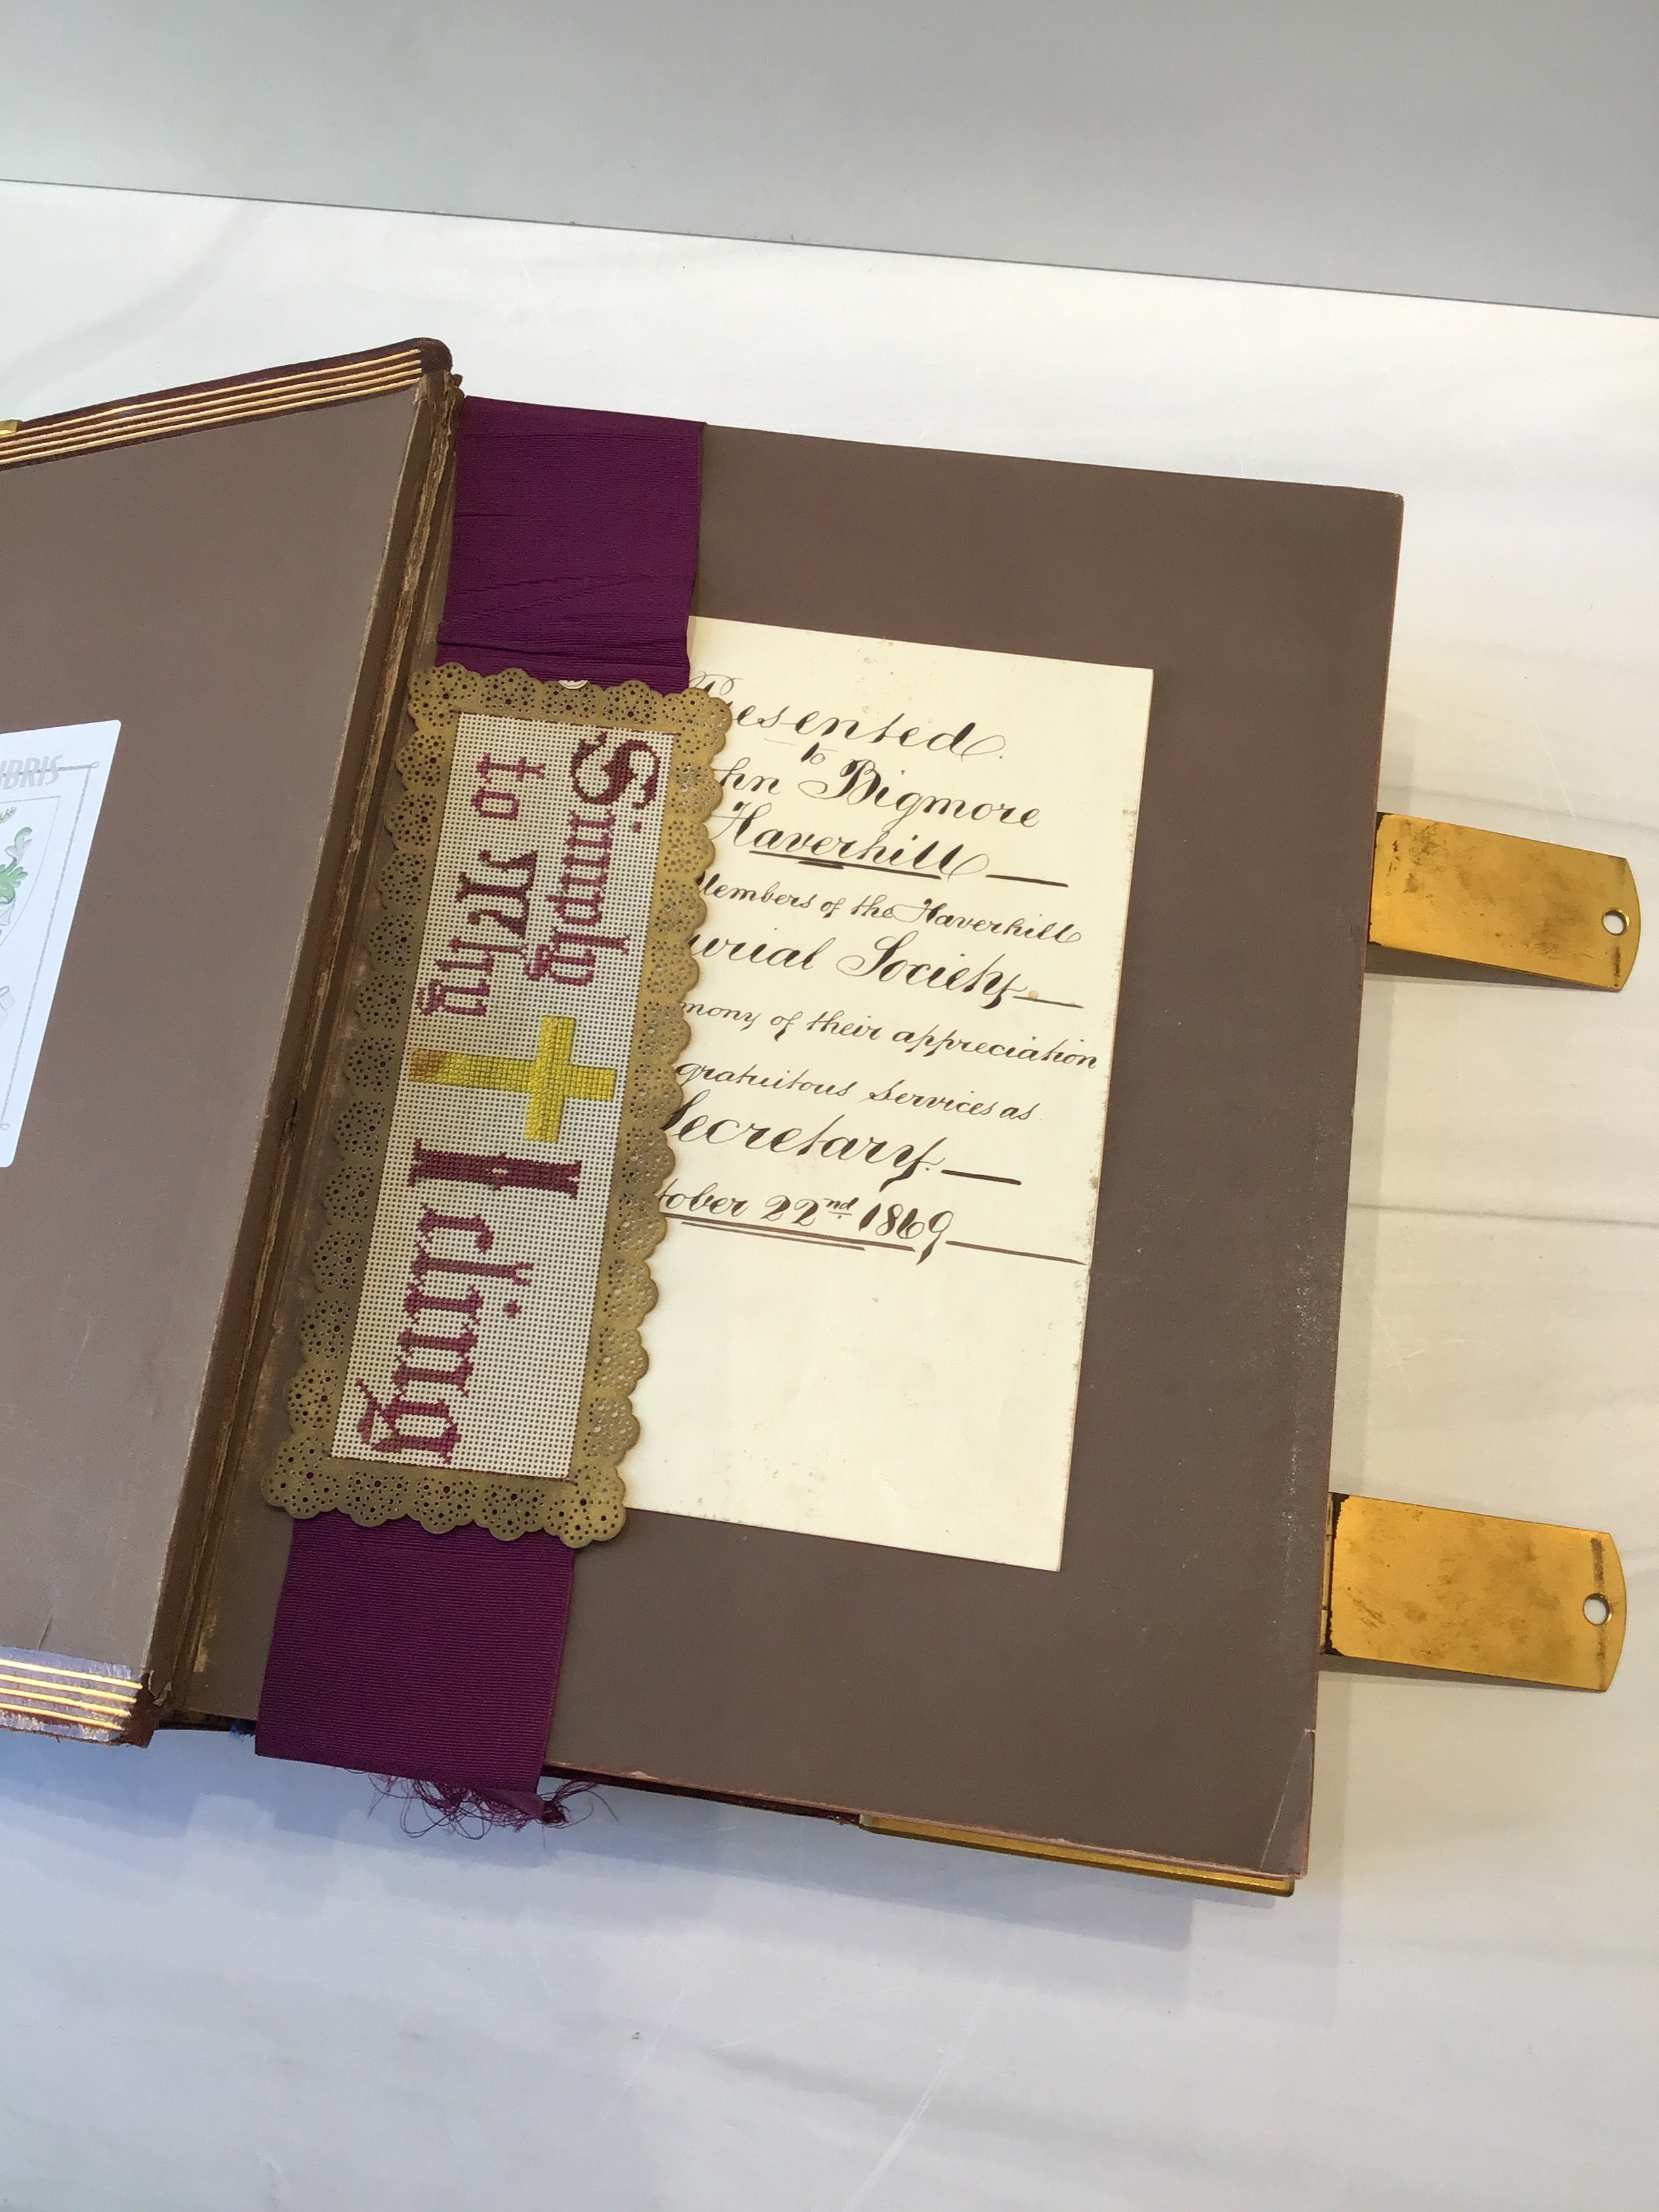 IBRIS
Simply
to Thy
I cling
Presented
to
hn Bigmore
Haverhill
Members of the Haverhill
urial Society
mony of their appreciation
gratuitous Services as
Secretary.
tober 22nd 1869